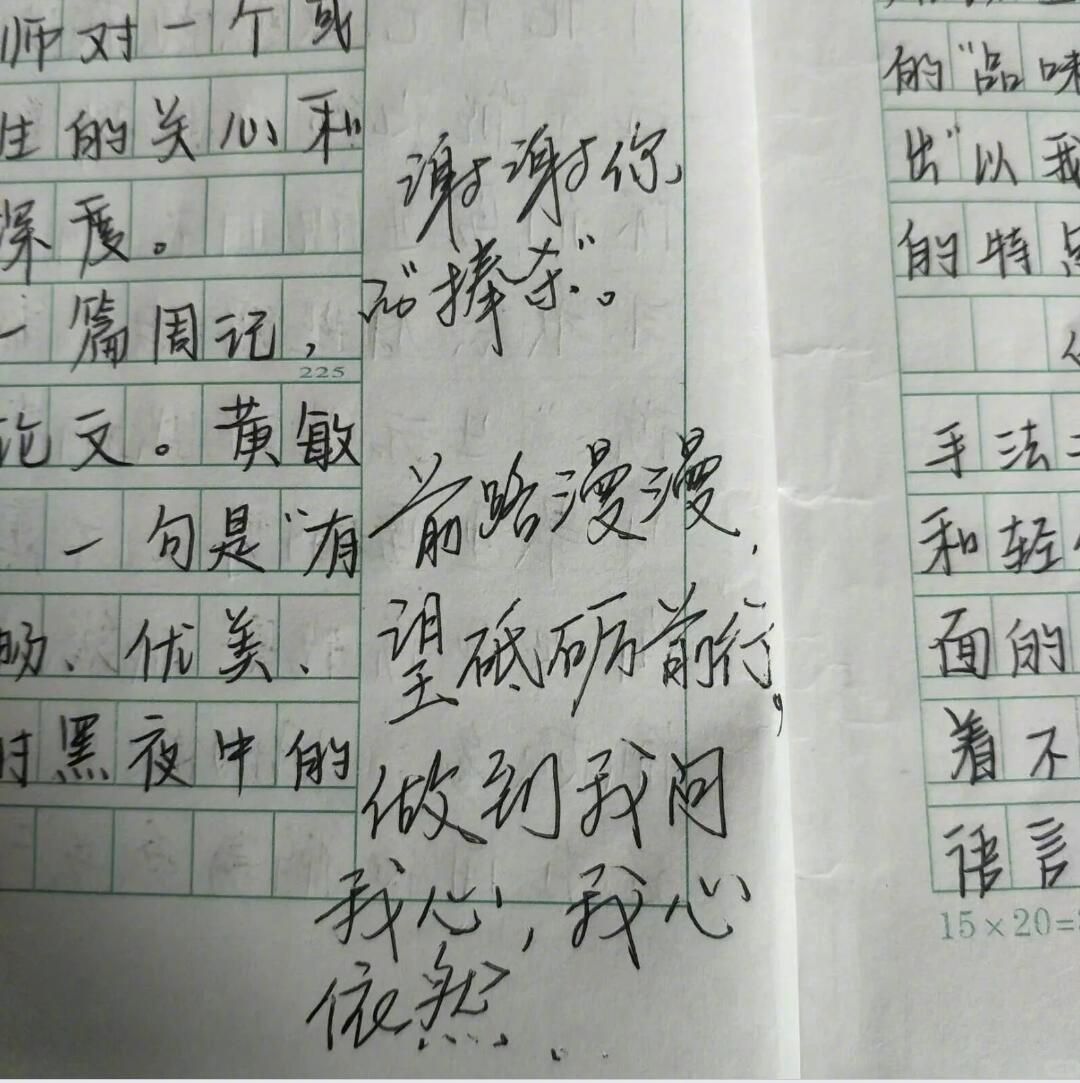 师对一个或
生的关心和
深度。
一篇周记，
225
论文。黄敏
一句是“有
畅、优美、
时黑夜中的
谢谢你
的“捧杀”。
前路漫漫，
望砥砺前行，
做到我问
我心，我心
依然……
的“品味
出“以我
的特点
手法
和轻
面的
着不
语言
15×20=